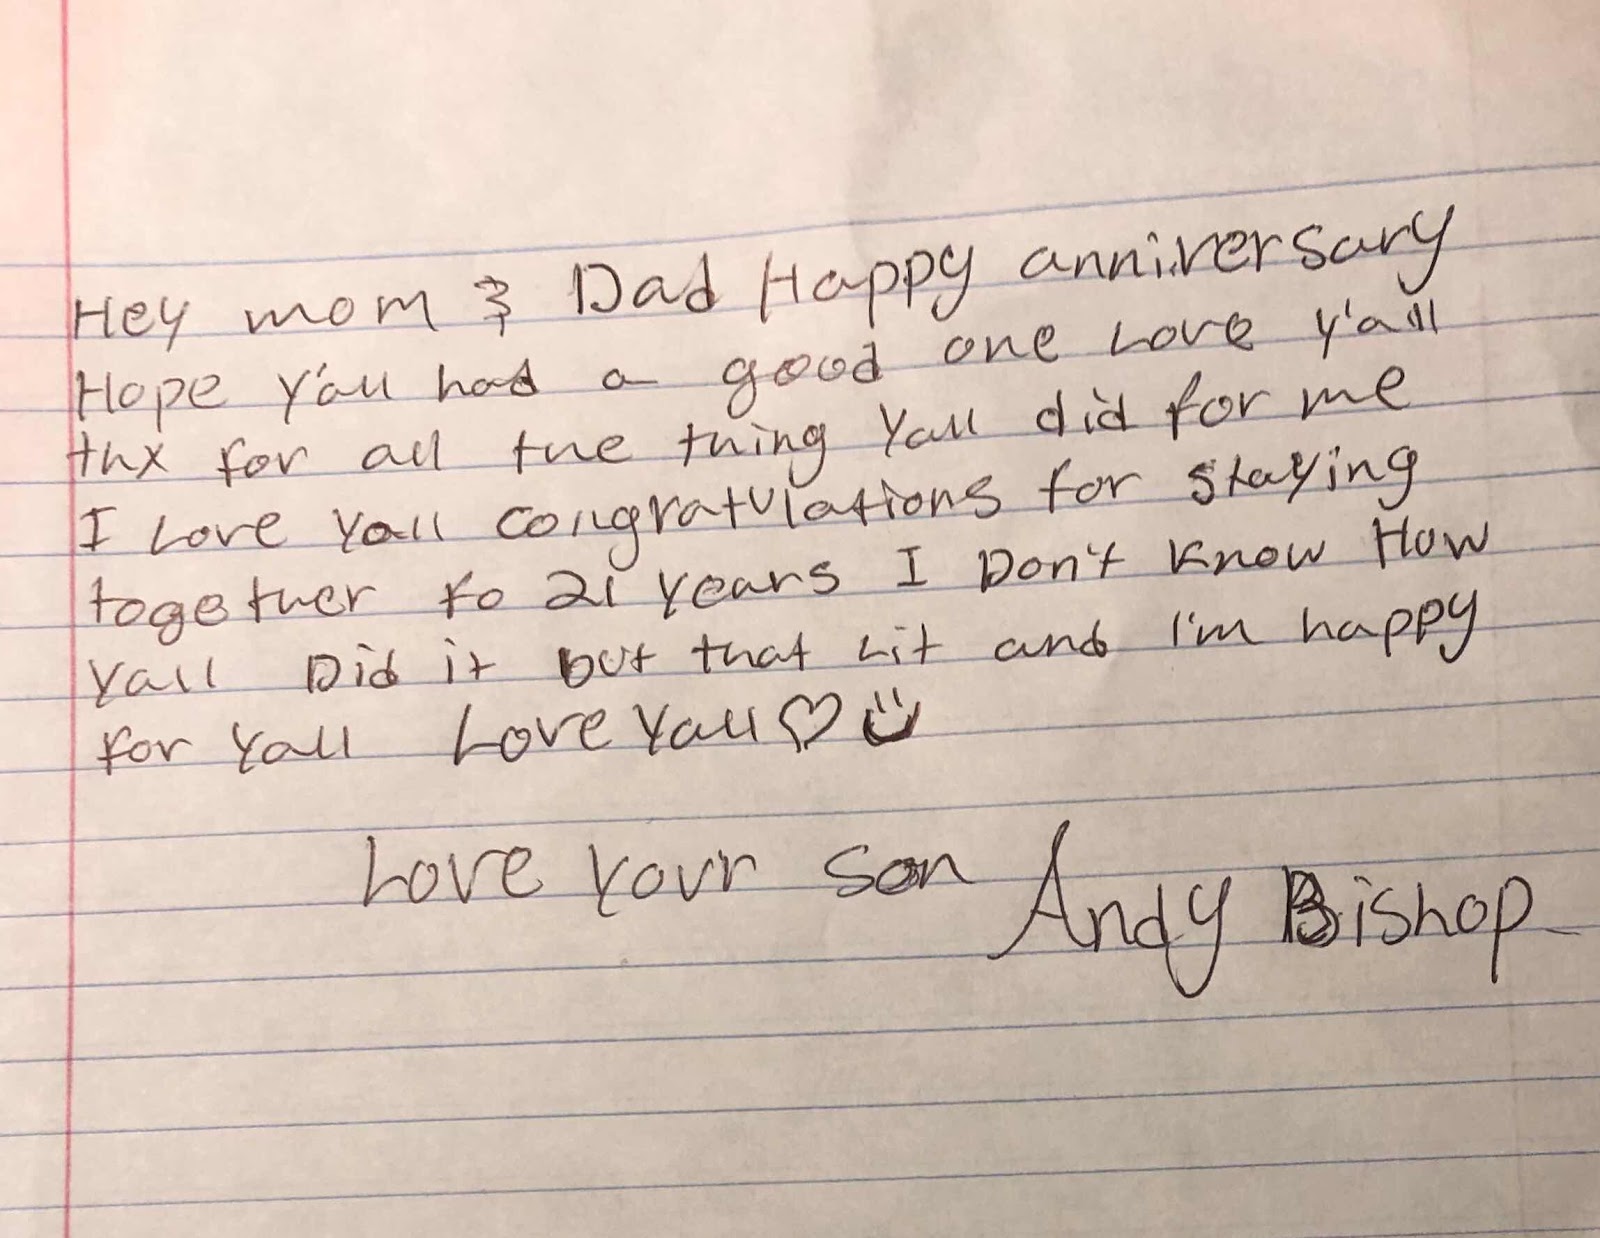 Hey mom & Dad Happy anniversary
Hope Y'all had a good one Love y'all
thx for all the thing Yall did for me
I Love Yall congratulations for staying
together fo 21 years I Don't Know How
Yall Did it but that lit and I'm happy
for Yall Love Yall ♡ ☺
Love Your son Andy Bishop